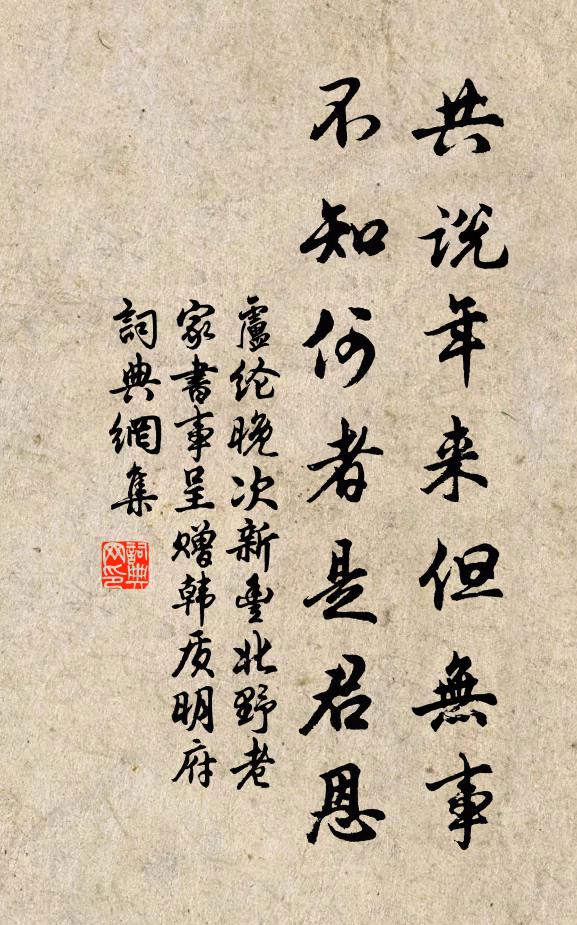 共说年来但無事
不知何者是君恩
盧纶晚次新豐北野老
家書事呈赠韩质明府
詞典網集
詞典
网印